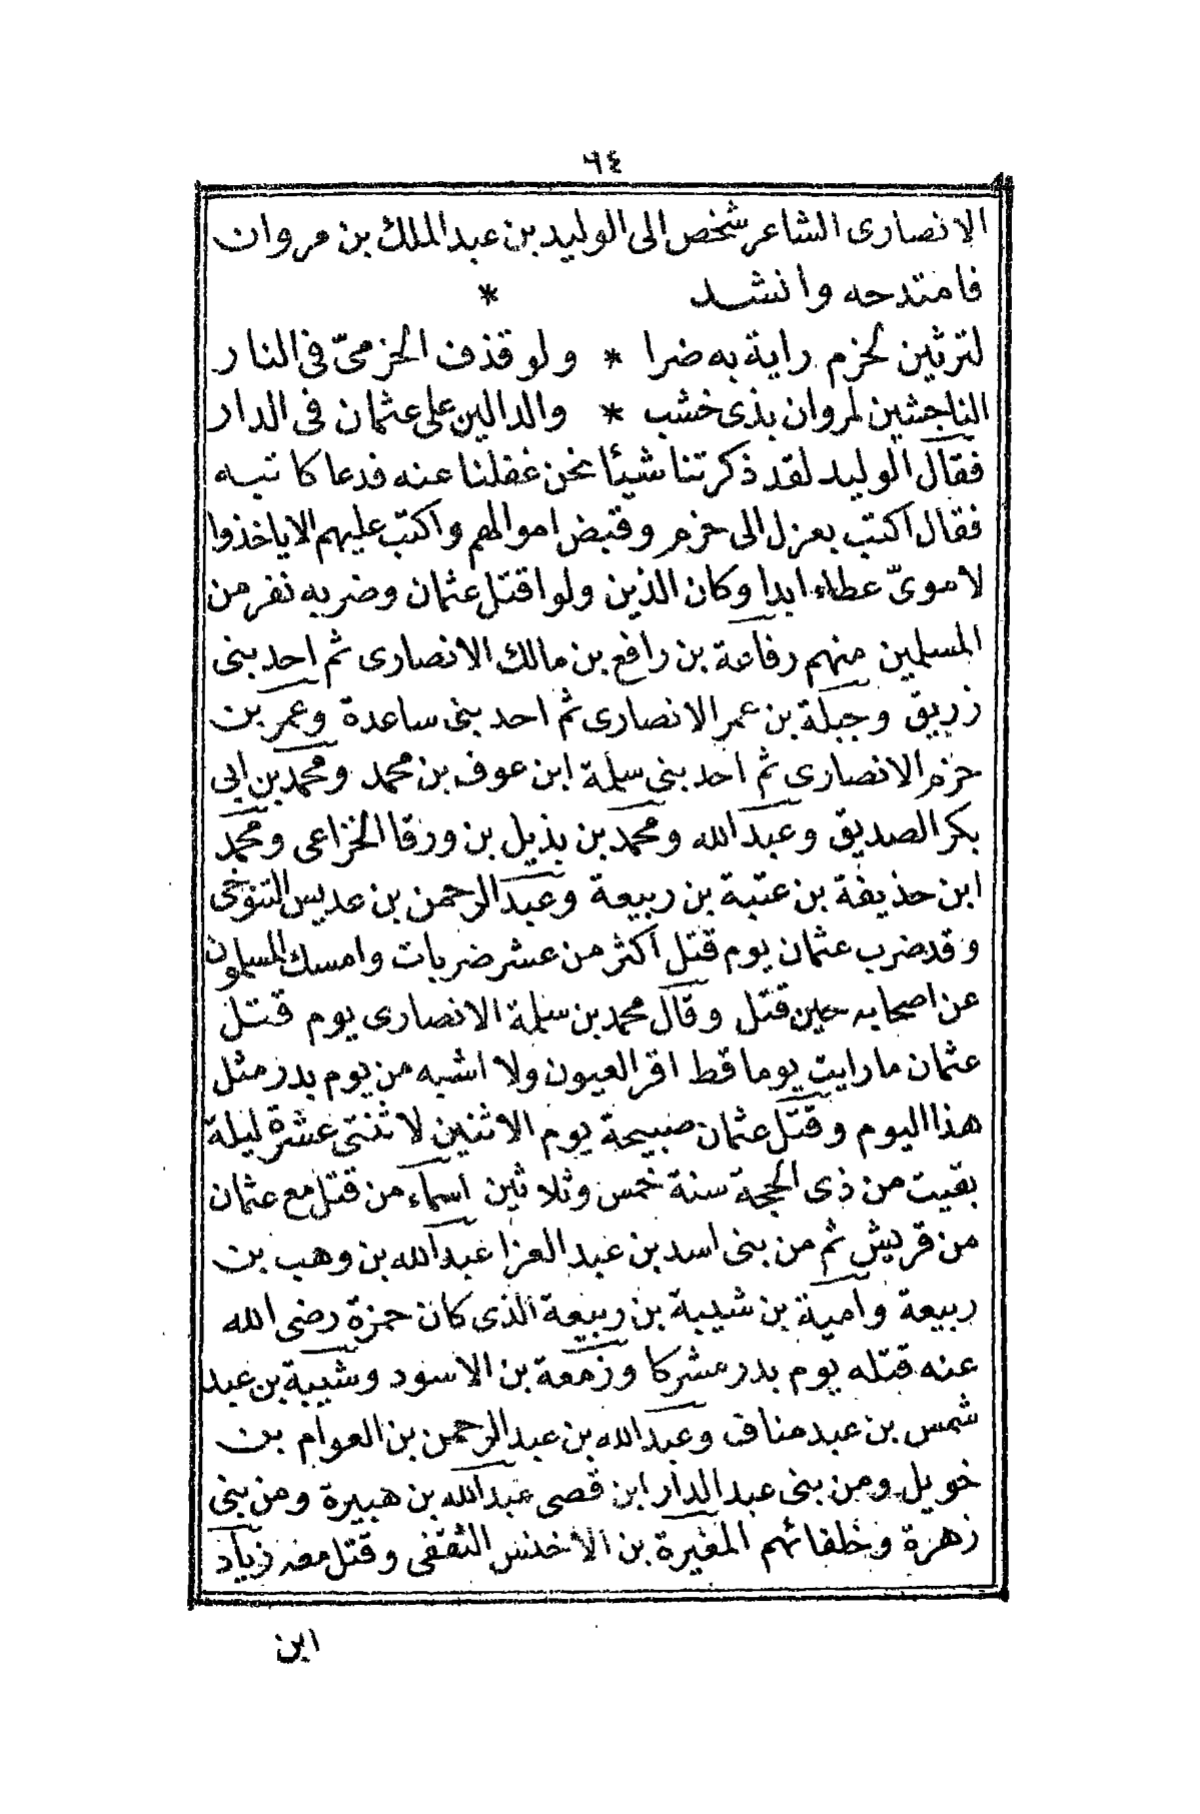 ٦٤
الانصارى الشاعر شخص الى الوليد بن عبد الملك بن مروان
فامتدحه وانشد *
لترثين لحزم راية به ضرا * ولو قذف الحزمىّ فى النار
الناجشين لمروان بذى خشب * والدالين على عثمان فى الدار
فقال الوليد لقد ذكرتنا شيئا نحن غفلنا عنه فدعا كاتبه
فقال اكتب بعزل الى حزم وقبض اموالهم واكتب عليهم الا ياخذوا
لاموىّ عطاء ابدا وكان الذين ولوا قتل عثمان وضربه نفر من
المسلمين منهم رفاعة بن رافع بن مالك الانصارى ثم احد بنى
زريق وجبلة بن عمر الانصارى ثم احد بنى ساعدة وعمر بن
حزم الانصارى ثم احد بنى سلمة ابن عوف بن محمد ومحمد بن ابى
بكر الصديق وعبد الله ومحمد بن بذيل بن ورقا الخزاعى ومحمد
ابن حذيفة بن عتبة بن ربيعة وعبد الرحمن بن عديس التنوخى
وقد ضرب عثمان يوم قتل اكثر من عشر ضربات وامسك المسلمون
عن اصحابه حين قتل وقال محمد بن سلمة الانصارى يوم قتل
عثمان ما رايت يوما قط اقر العيون ولا اشبه من يوم بدر مثل
هذا اليوم وقتل عثمان صبيحة يوم الاثنين لا ثنتى عشرة ليلة
بقيت من ذى الحجة سنة خمس وثلاثين اسماء من قتل مع عثمان
من قريش ثم من بنى اسد بن عبد العزا عبد الله بن وهب بن
ربيعة وامية بن شيبة بن ربيعة الذى كان حمزة رضى الله
عنه قتله يوم بدر مشركا وزمعة بن الاسود وشيبة بن عبد
شمس بن عبد مناف وعبد الله بن عبد الرحمن بن العوام بن
خويل ومن بنى عبد الدار ابن قصى عبد الله بن هبيرة ومن بنى
زهرة وخلفائهم المغيرة بن الاخنس الثقفى وقتل معه زياد
ابن